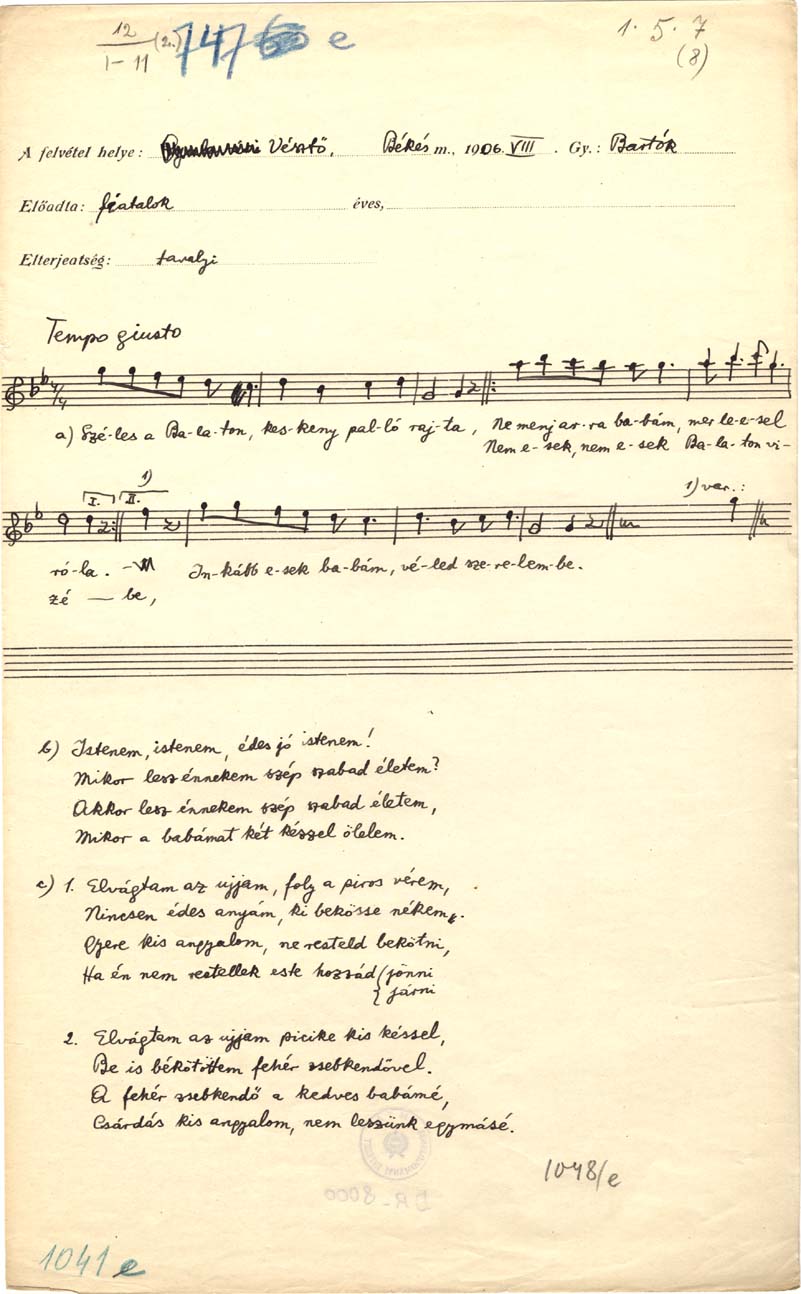 12
I-11 (2.) 747 e
1. 5. 7
(8)
A felvétel helye: Vésztő, Békés m., 1906. VIII. Gy.: Bartók
Előadta: fiatalok éves,
Elterjeatség: tavalyi
Tempo giusto
4/4
a) Szé-les a Ba-la-ton, kes-keny pal-ló raj-ta, Ne menj ar-ra ba-bám, mer le-e-sel
Nem e-sek, nem e-sek Ba-la-ton vi-
1)
I. II. 1) var.:
ró-la. - In-kább e-sek ba-bám, vé-led sze-re-lem-be.
zé — be,
b) Istenem, istenem, édes jó istenem!
Mikor lesz énnekem szép szabad életem?
Akkor lesz énnekem szép szabad életem,
Mikor a babámat két kézzel ölelem.
c) 1. Elvágtam az ujjam, foly a piros vérem,
Nincsen édes anyám, ki bekösse nékem.
Gyere kis angyalom, ne resteld bekötni,
Ha én nem restellek este hozzád { jönni
{ járni
2. Elvágtam az ujjam picike kis késsel,
Be is békötöttem fehér zsebkendővel.
A fehér zsebkendő a kedves babámé,
Csárdás kis angyalom, nem leszünk egymásé.
1048/e
DR-8000
1041 e